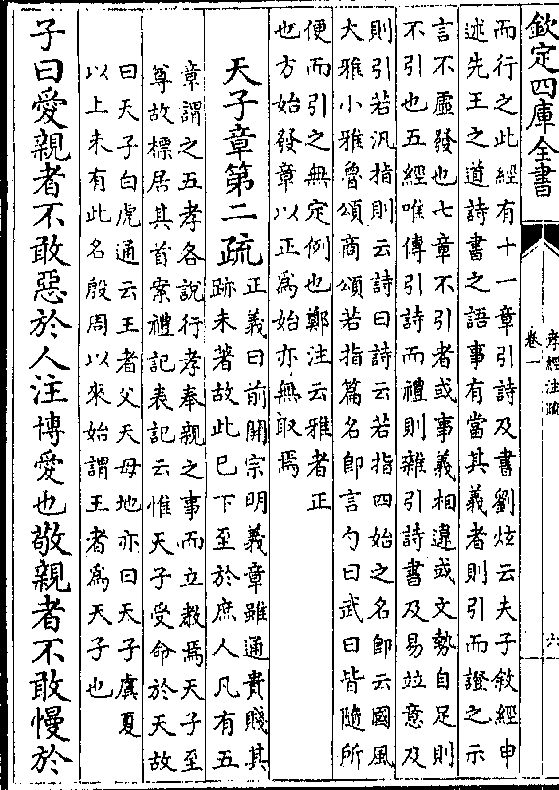 欽定四庫全書
孝經注疏
卷一
六
而行之此經有十一章引詩及書劉炫云夫子敘經申
述先王之道詩書之語事有當其義者則引而證之示
言不虛發也七章不引者或事義相違或文勢自足則
不引也五經唯傳引詩而禮則雜引詩書及易竝意及
則引若汎指則云詩曰詩云若指四始之名即云國風
大雅小雅魯頌商頌若指篇名即言勺曰武曰皆隨所
便而引之無定例也鄭注云雅者正
也方始發章以正為始亦無取焉
天子章第二疏
正義曰前開宗明義章雖通貴賤其
跡未著故此已下至於庶人凡有五
章謂之五孝各說行孝奉親之事而立教焉天子至
尊故標居其首案禮記表記云惟天子受命於天故
曰天子白虎通云王者父天母地亦曰天子虞夏
以上未有此名殷周以來始謂王者為天子也
子曰愛親者不敢惡於人注博愛也敬親者不敢慢於